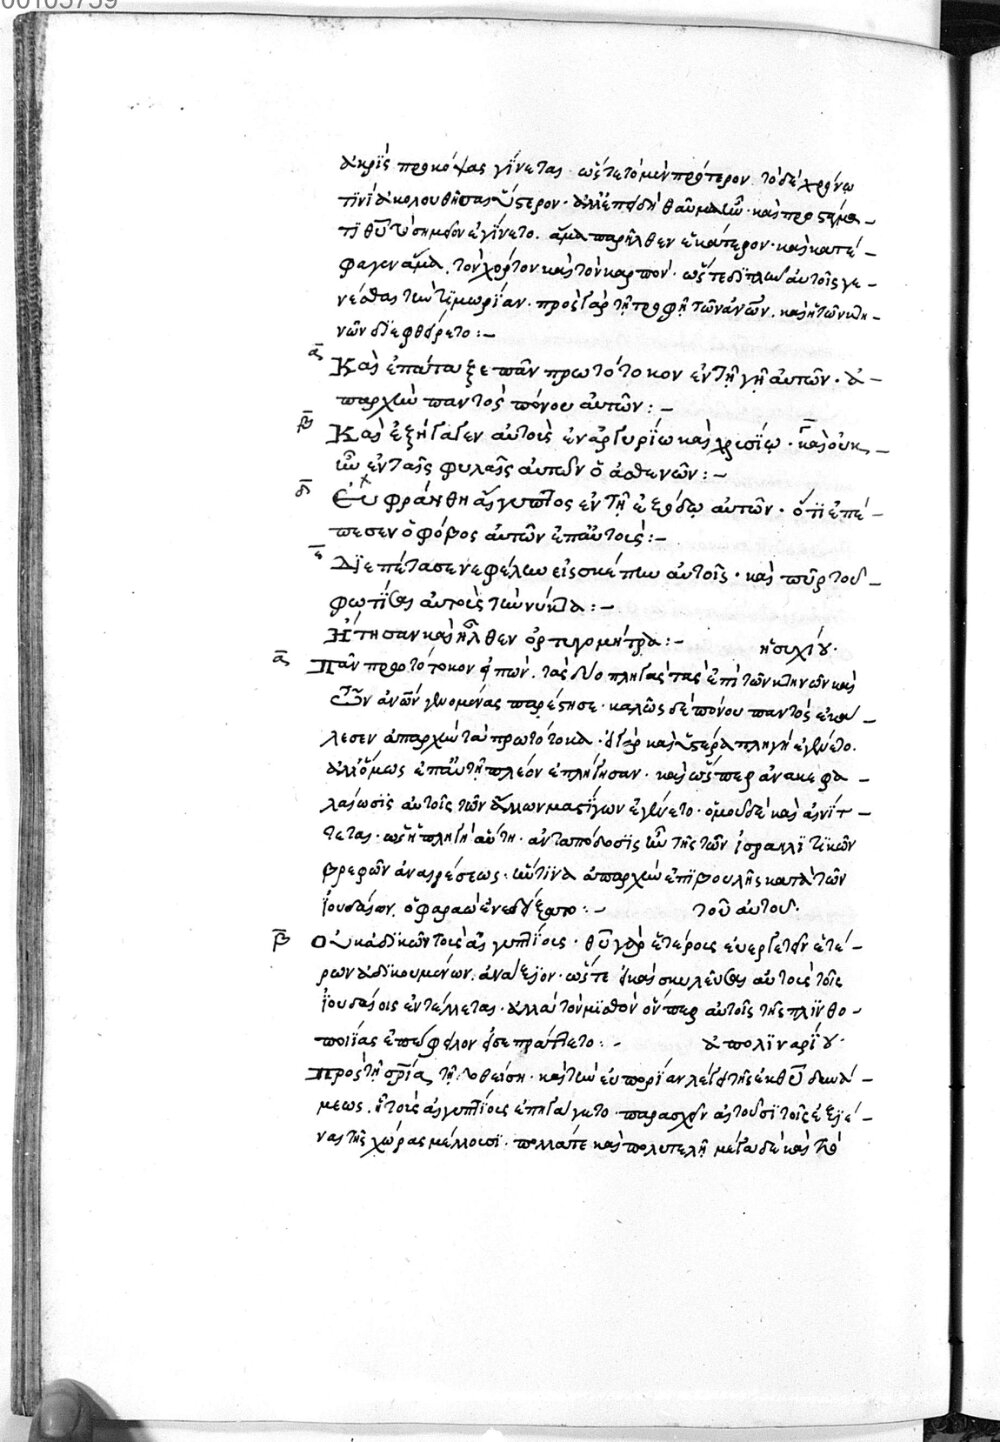 00103759
ἀκρὶς προκόψας γίνεται ὥστε τὸ μὲν πρότερον τὸ δὲ χρόνω
τινὶ ἀκολουθῆσαι ὕστερον· ἀλλ' ἐπειδὴ θαῦμα ἦν· καὶ προστάγμα
τι θῦ τὸ σημεῖον ἐγίνετο. ἅμα παρῆλθεν ἑκάτερον· καὶ κατέ-
φαγεν ἅμα, τὸν χόρτον καὶ τὸν καρπόν· ὥστε διπλῆν αὐτοῖς γε-
νέσθαι τὴν τιμωρίαν· πρὸς γὰρ τῇ τροφῇ τῶν ἀνῶν, καὶ ἡ τῶν κτη-
νῶν διεφθείρετο:-
α Καὶ ἐπάταξε πᾶν πρωτότοκον ἐν τῇ γῇ αὐτῶν· ἀ-
παρχὴν παντὸς πόνου αὐτῶν:-
β Καὶ ἐξήγαγεν αὐτοὺς ἐν ἀργυρίω καὶ χρυσίῳ· γ καὶ οὐκ
ἦν ἐν ταῖς φυλαῖς αὐτῶν ὁ ἀσθενῶν:-
δ Εὐφράνθη αἴγυπτος ἐν τῇ ἐξόδῳ αὐτῶν· ὅτι ἐπέ-
πεσεν ὁ φόβος αὐτῶν ἐπ' αὐτούς:-
ε Διεπέτασε νεφέλην εἰς σκέπην αὐτοῖς· καὶ πῦρ τοῦ
φωτίσαι αὐτοῖς τὴν νύκτα:-
Ἤτησαν καὶ ἦλθεν ὀρτυγομήτρα:- ἡσυχίου·
α Πᾶν πρωτότοκον εἰπών, τὰς δύο πληγὰς τὰς ἐπὶ τῶν κτηνῶν καὶ
τῶν ἀνῶν γενομένας παρέστησε· καλῶς δὲ πόνου παντὸς ἐκά-
λεσεν ἀπαρχὴν τὰ πρωτότοκα· εἰ γὰρ καὶ ὑστέρα πληγὴ ἐγένετο.
ἀλλ' ὅμως ἐπ' αὐτῇ πλέον ἐπλήγησαν· καὶ ὥσπερ ἀνακεφα-
λαίωσις αὐτοῖς τῶν ἄλλων μαστίγων ἐγένετο· ὁμοῦ δὲ καὶ αἰνίτ-
τεται· ὡς ἡ πληγὴ αὕτη· ἀνταπόδοσις ἦν τῆς τῶν ἰσραηλιτικῶν
βρεφῶν ἀναιρέσεως· ὥς τινα ἀπαρχὴν ἐπιβουλῆς κατὰ τῶν
ἰουδαίων, ὁ φαραὼ ἐνεδείξατο:- τοῦ αὐτοῦ·
β Οὐκ ἀδικῶν τοὺς αἰγυπτίους· θῦ γὰρ ἑτέροις εὐεργετεῖν ἑτέ-
ρων ἀδικουμένων, ἀνάξιον· ὥστε εἰ καὶ σκυλεῦσαι αὐτοὺς τοῖς
ἰουδαίοις ἐντέλλεται· ἀλλὰ τὸν μισθὸν ὅνπερ αὐτοῖς τῆς πλινθο-
ποιίας ἐπώφειλον εἰσεπράττετο:- ἀπολιναρίου·
Πρὸς τῇ σρία τῇ δοθείσῃ· καὶ τὴν εὐπορίαν λέγει τῆς ἐκ θῦ δυνά-
μεως. ἣ τοὺς αἰγυπτίους ἐπηγάγετο παρασχεῖν αἰτοῦσι τοῖς ἐξιέ-
ναι τῆς χώρας μέλλουσι· πολλά τε καὶ πολυτελῆ· μέγα δὲ καὶ τὸ